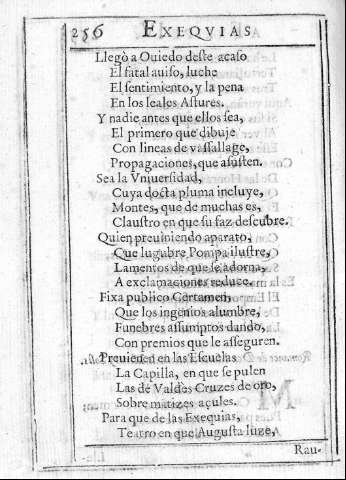 256 EXEQVIAS
Llegò a Ouiedo deste acaso
El fatal auiso, luche
El sentimiento, y la pena
En los leales Astures.
Y nadie antes que ellos sea,
El primero que dibuje
Con lineas de vassallage,
Propagaciones, que asusten.
Sea la Vniuersidad,
Cuya docta pluma incluye,
Montes, que de muchas es,
Claustro en que su faz descubre.
Quien preuiniendo aparato,
Que lugubre Pompa ilustre,
Lamentos de que se adorna,
A exclamaciones reduce.
Fixa publico Certamen,
Que los ingenios alumbre,
Funebres assumptos dando,
Con premios que le asseguren.
Preuienen en las Escuelas
La Capilla, en que se pulen
Las de Valdès Cruzes de oro,
Sobre matizes açules.
Para que de las Exequias,
Teatro en que Augusta luze,
Rau-